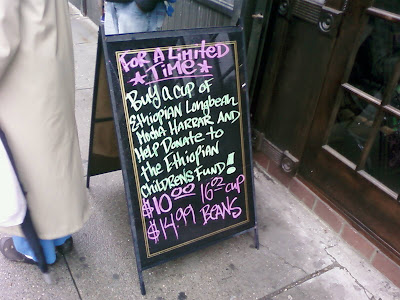 FOR A LIMITED
*TIME*
BUY A CUP OF
ETHIOPIAN LONGBEAN
MOCHA HARRAR AND
HELP DONATE TO
THE ETHIOPIAN
CHILDRENS FUND!
$10.00 16oz CUP
$14.99 BEANS